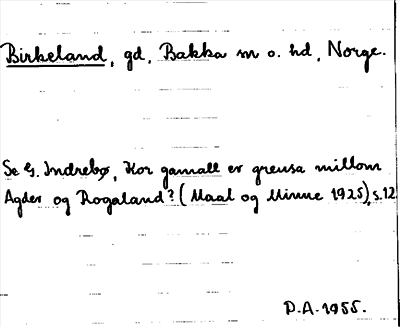 Birkeland, gd, Bakka m o. hd, Norge.
Se G. Indrebø, Kor gamall er grensa millom
Agder og Rogaland? (Maal og Minne 1925), s. 12
D.A. 1955.